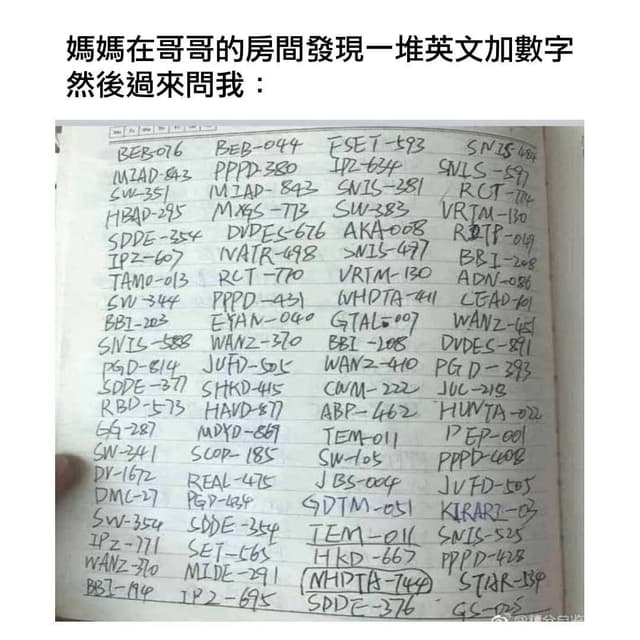 媽媽在哥哥的房間發現一堆英文加數字
然後過來問我：
BEB-076 BEB-044 FSET-593 SNIS-484
MIAD-843 PPPD-380 IPZ-634 SNIS-597
SW-351 MIAD-843 SNIS-381 RCT-774
HBAD-295 MXGS-773 SW-383 VRTM-130
SDDE-354 DVDES-676 AKA-008
IPZ-607 NATR-498 SNIS-497 BBI-208
TAMO-013 RCT-770 VRTM-130 ADN-086
SW-344 PPPD-431 WHDTA-411 CEAD-101
BBI-203 EYAN-040 GTAL-007 WANZ-451
SNIS-588 WANZ-370 BBI-208 DVDES-891
PGD-814 JUFD-505 WANZ-410 PGD-393
SDDE-377 SHKD-415 CWM-222 JUC-213
RBD-573 HAVD-877 ABP-462 HUNTA-022
GG-287 MDYD-869 TEM-011 PEP-001
SW-341 SCOP-185 SW-105 PPPD-408
DV-1672 REAL-475 JBS-004 JUFD-505
DMC-27 PGD-434 GDTM-051 KIRARI-03
SW-354 SDDE-354 TEM-011 SNIS-525
IPZ-771 SET-565 HKD-667 PPPD-428
WANZ-370 MIDE-291 NHDTA-744 STAR-534
BBI-194 IPZ-695 SDDE-376